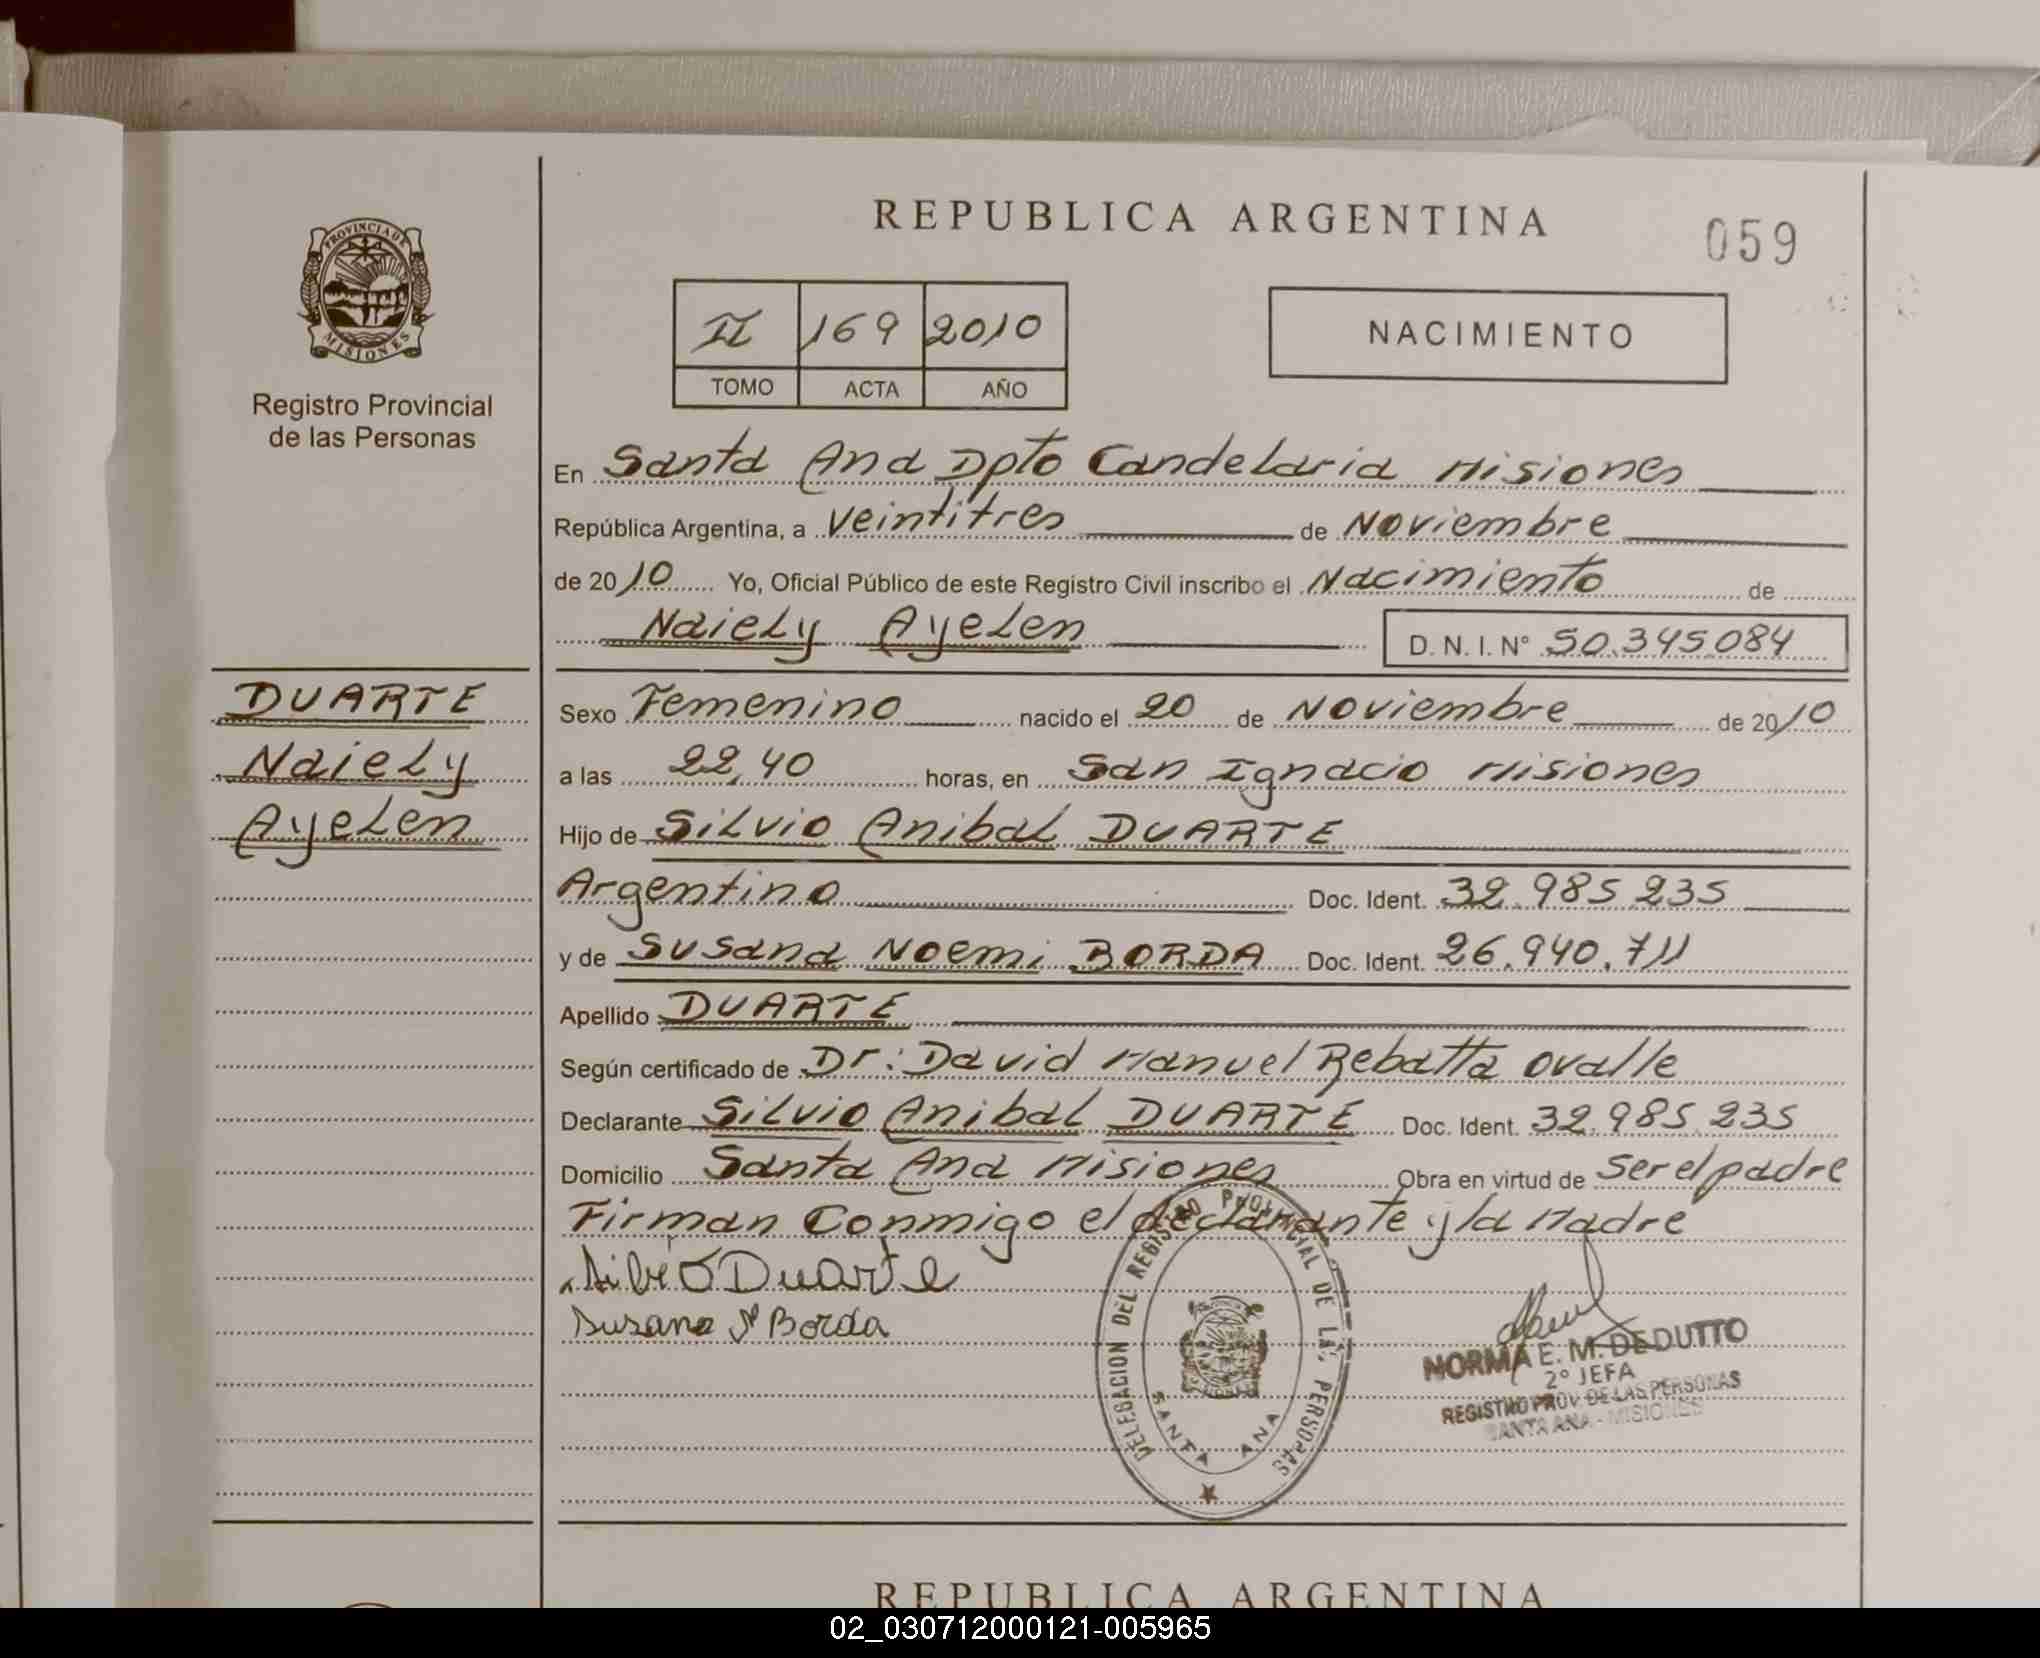 REPUBLICA ARGENTINA
059
PROVINCIA DE
MISIONES
Registro Provincial
de las Personas
II 169 2010
TOMO ACTA AÑO
NACIMIENTO
En Santa Ana Dpto Candelaria Misiones
República Argentina, a Veintitres de Noviembre
de 2010 Yo, Oficial Público de este Registro Civil inscribo el Nacimiento de
Naiely Ayelen D. N. I. N° 50.345.084
DUARTE
Naiely
Ayelen
Sexo Femenino nacido el 20 de Noviembre de 2010
a las 22,40 horas, en San Ignacio Misiones
Hijo de Silvio Anibal DUARTE
Argentino Doc. Ident. 32.985.235
y de Susana Noemi BORDA Doc. Ident. 26.940.711
Apellido DUARTE
Según certificado de Dr: David Manuel Rebatta Ovalle
Declarante Silvio Anibal DUARTE Doc. Ident. 32.985.235
Domicilio Santa Ana Misiones Obra en virtud de Ser el padre
Firman Conmigo el declarante y la Madre
Silvio Duarte
Susana N Borda
DELEGACION DEL REGISTRO PROVINCIAL DE LAS PERSONAS
SANTA ANA
NORMA E. M. DE DUTTO
2° JEFA
REGISTRO PROV. DE LAS PERSONAS
SANTA ANA - MISIONES
REPUBLICA ARGENTINA
02_030712000121-005965